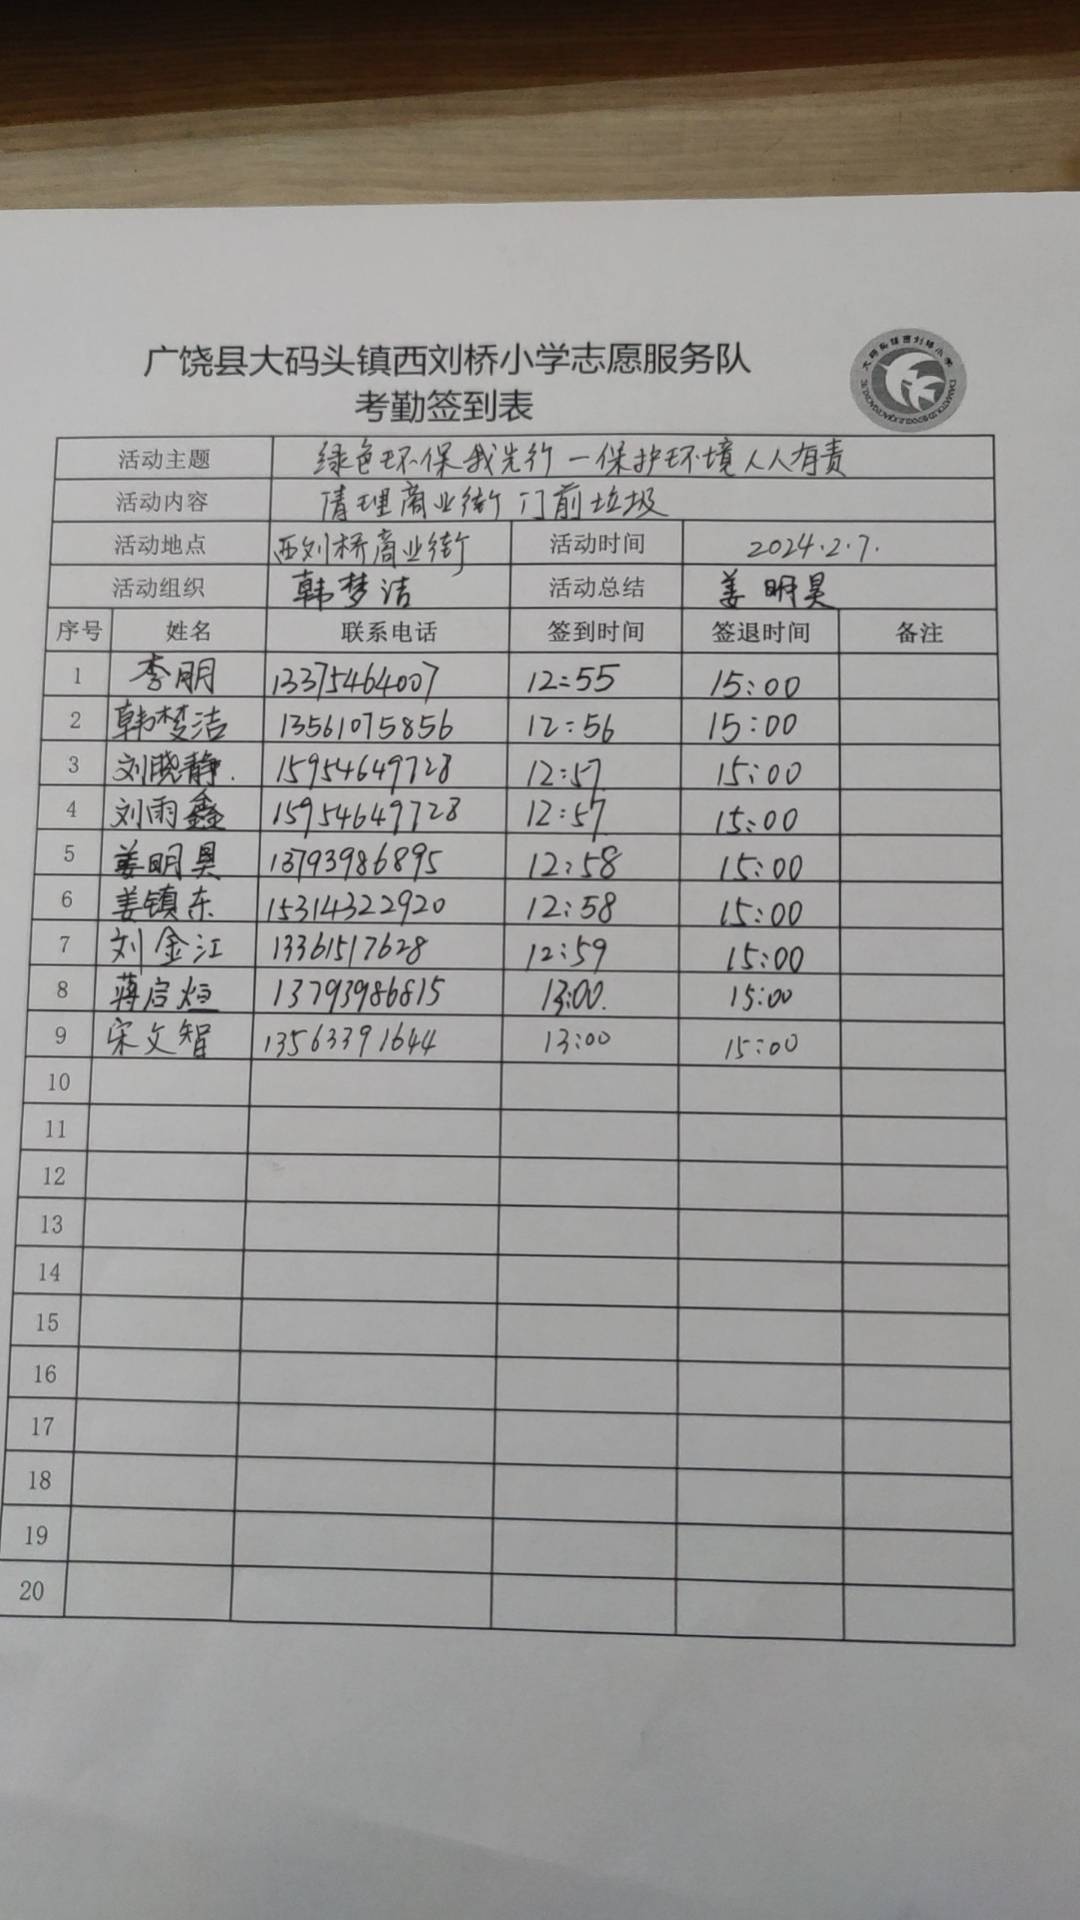 广饶县大码头镇西刘桥小学志愿服务队
考勤签到表
大码头镇西刘桥小学
活动主题 绿色环保我先行一保护环境人人有责
活动内容 清理商业街门前垃圾
活动地点 西刘桥商业街 活动时间 2024.2.7.
活动组织 韩梦洁 活动总结 姜明昊
序号 姓名 联系电话 签到时间 签退时间 备注
1 李明 13375464007 12:55 15:00
2 韩梦洁 13561075856 12:56 15:00
3 刘晓静. 15954649728 12:57 15:00
4 刘雨鑫 15954649728 12:57 15:00
5 姜明昊 13793986895 12:58 15:00
6 姜镇东 15314322920 12:58 15:00
7 刘金江 13361517628 12:59 15:00
8 蒋启烜 13793986815 13:00. 15:00
9 宋文智 13563391644 13:00 15:00
10
11
12
13
14
15
16
17
18
19
20